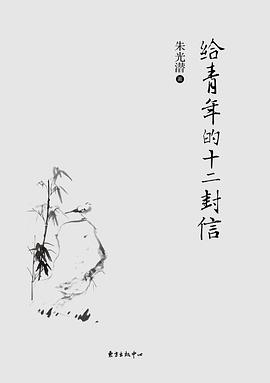 给青年的十二封信
朱光潜 著
东方出版中心